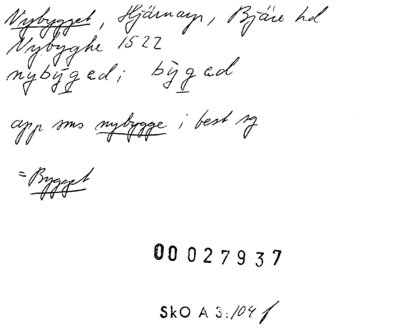 Nybygget, Hjärnarp, Bjäre hd
Nybyghe 1522
nybýgad; býgad
app sms nybygge i best sg
= Bygget
00027937
SkO A 3:104 f